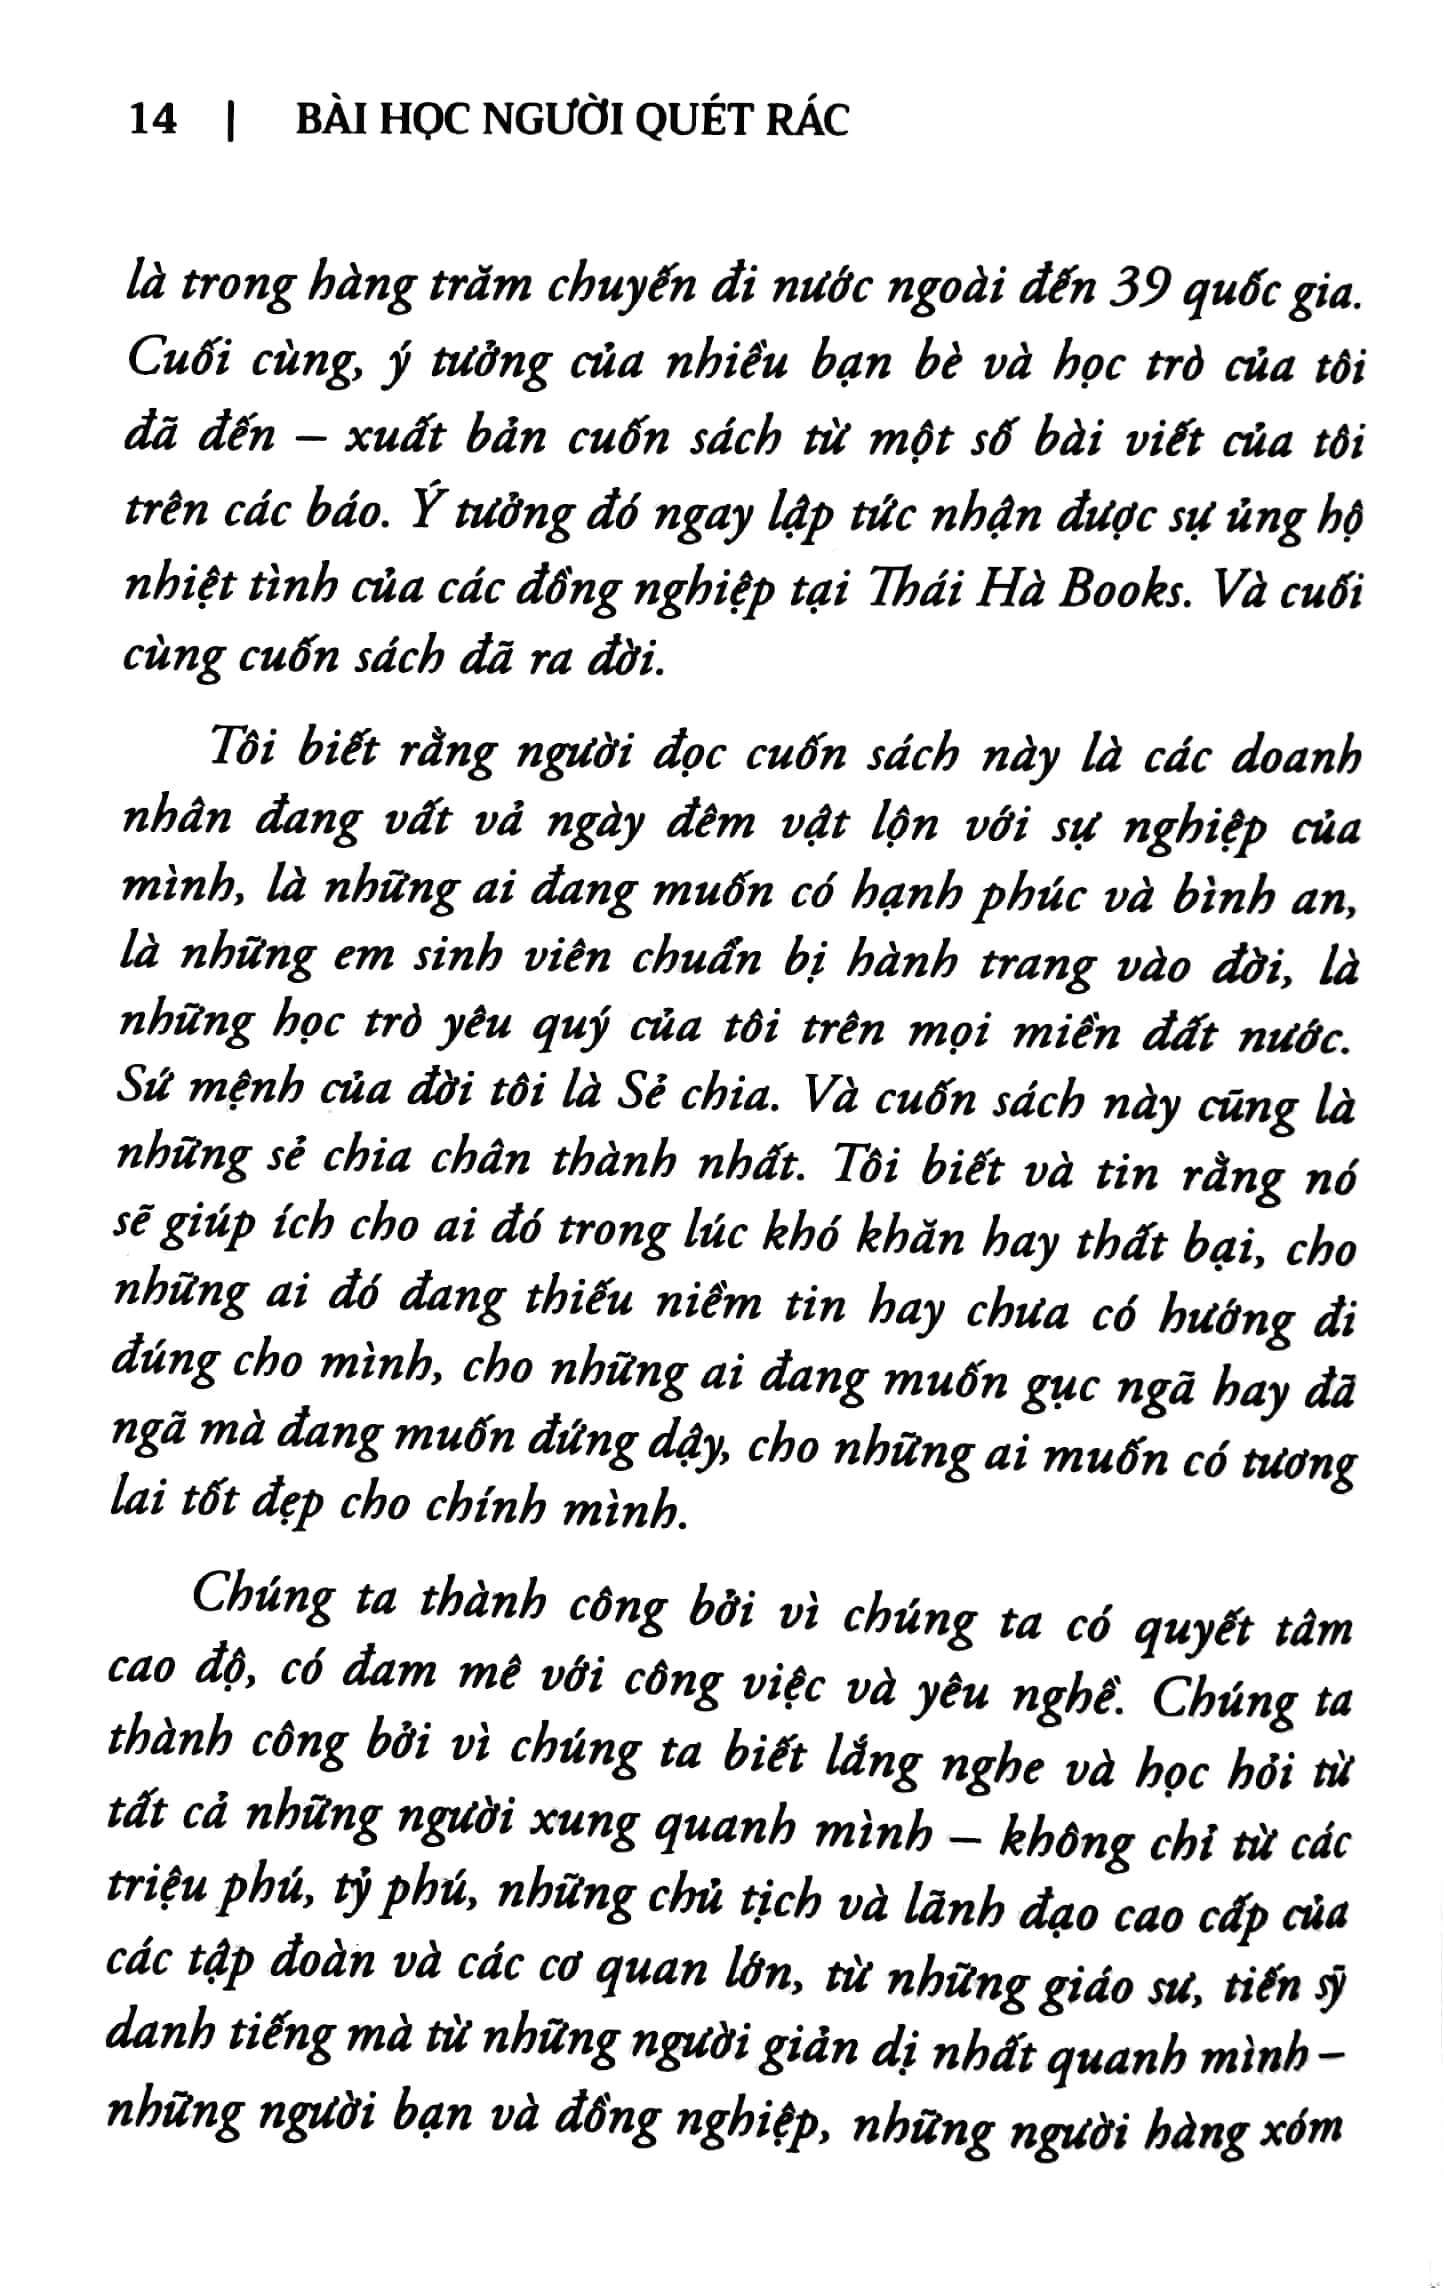 14 | BÀI HỌC NGƯỜI QUÉT RÁC
là trong hàng trăm chuyến đi nước ngoài đến 39 quốc gia.
Cuối cùng, ý tưởng của nhiều bạn bè và học trò của tôi
đã đến – xuất bản cuốn sách từ một số bài viết của tôi
trên các báo. Ý tưởng đó ngay lập tức nhận được sự ủng hộ
nhiệt tình của các đồng nghiệp tại Thái Hà Books. Và cuối
cùng cuốn sách đã ra đời.
Tôi biết rằng người đọc cuốn sách này là các doanh
nhân đang vất vả ngày đêm vật lộn với sự nghiệp của
mình, là những ai đang muốn có hạnh phúc và bình an,
là những em sinh viên chuẩn bị hành trang vào đời, là
những học trò yêu quý của tôi trên mọi miền đất nước.
Sứ mệnh của đời tôi là Sẻ chia. Và cuốn sách này cũng là
những sẻ chia chân thành nhất. Tôi biết và tin rằng nó
sẽ giúp ích cho ai đó trong lúc khó khăn hay thất bại, cho
những ai đó đang thiếu niềm tin hay chưa có hướng đi
đúng cho mình, cho những ai đang muốn gục ngã hay đã
ngã mà đang muốn đứng dậy, cho những ai muốn có tương
lai tốt đẹp cho chính mình.
Chúng ta thành công bởi vì chúng ta có quyết tâm
cao độ, có đam mê với công việc và yêu nghề. Chúng ta
thành công bởi vì chúng ta biết lắng nghe và học hỏi từ
tất cả những người xung quanh mình – không chỉ từ các
triệu phú, tỷ phú, những chủ tịch và lãnh đạo cao cấp của
các tập đoàn và các cơ quan lớn, từ những giáo sư, tiến sỹ
danh tiếng mà từ những người giản dị nhất quanh mình –
những người bạn và đồng nghiệp, những người hàng xóm